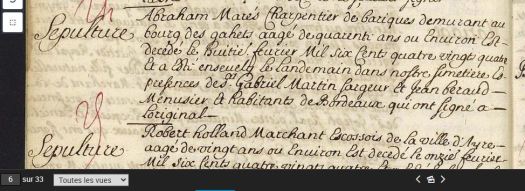 Sepulture
Abraham Marés Charpentier de bariques demurant au
bourg des gahets aagé de quarente ans ou Environ Est
decedé le huitié feurier Mil six Cents quatre vingts quatre
Et a Eté enseuely le landemain dans nostre simetiere Es
presences des Srs Gabriel Martin sargeur et Jean beraud
Menusier et habitants de Bordeaux qui ont signé a
Loriginal
Sepulture
Robert holland Marchant Escossois de la ville d'Ayre
aagé de vingt ans ou Environ Est decedé le onzié feurier
Mil six Cents quatre vingts quatre
6 sur 33 Toutes les vues